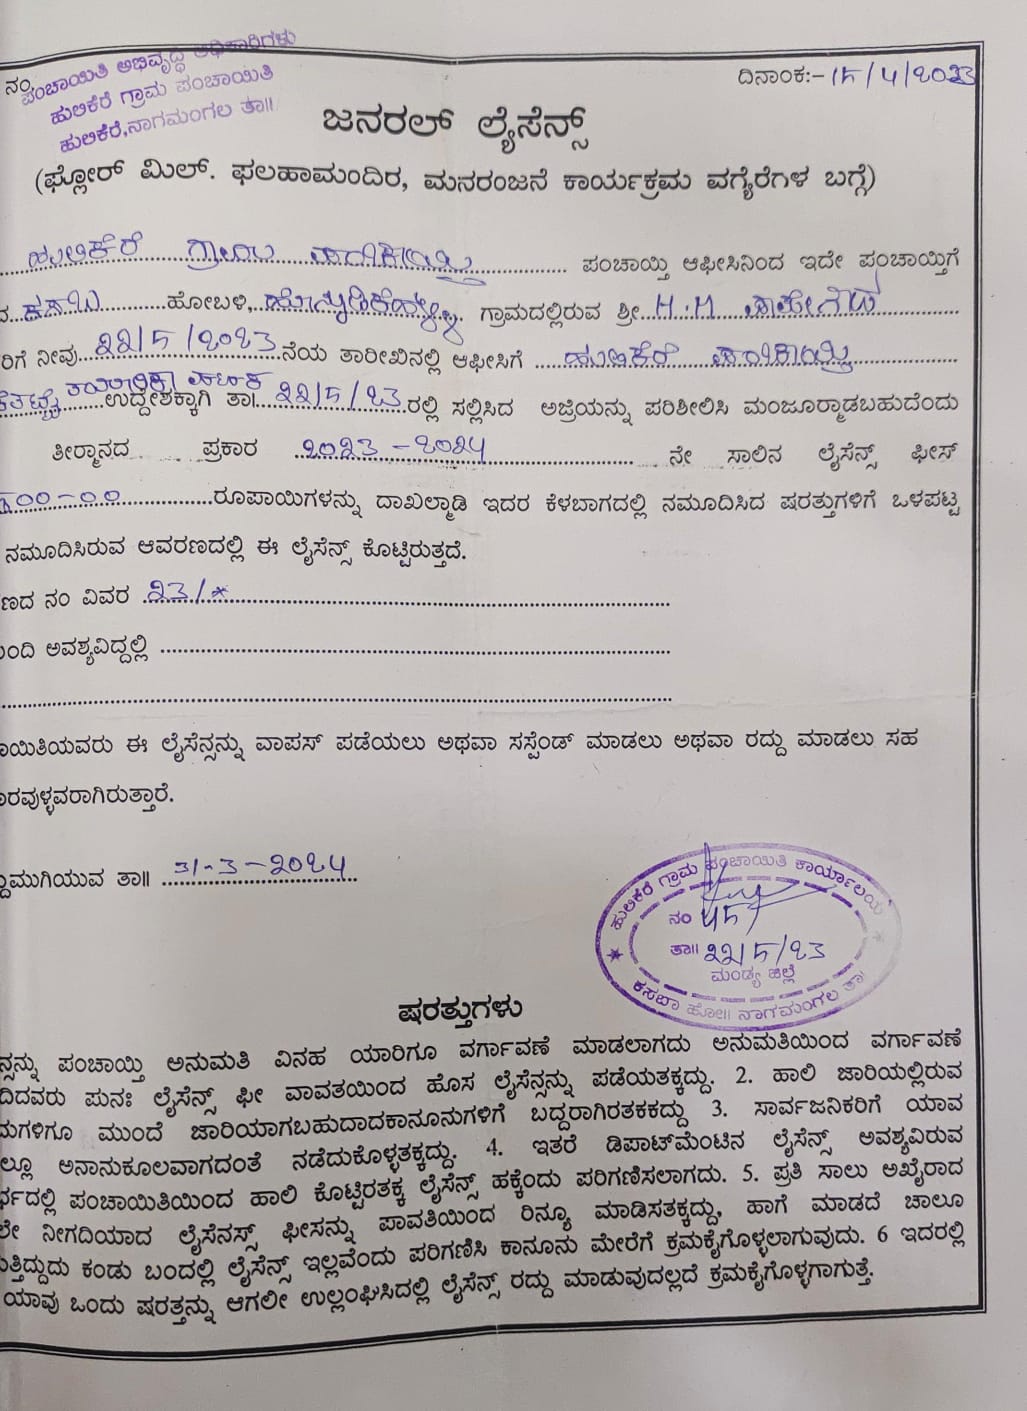 ನಂ
ಪಂಚಾಯಿತಿ ಅಭಿವೃದ್ಧಿ ಅಧಿಕಾರಿಗಳು
ಹುಲಿಕೆರೆ ಗ್ರಾಮ ಪಂಚಾಯಿತಿ
ಹುಲಿಕೆರೆ,ನಾಗಮಂಗಲ ತಾ॥
ದಿನಾಂಕ:-15/4/2023
ಜನರಲ್ ಲೈಸೆನ್ಸ್
(ಫ್ಲೋರ್ ಮಿಲ್. ಫಲಹಾಮಂದಿರ, ಮನರಂಜನೆ ಕಾರ್ಯಕ್ರಮ ವಗೈರೆಗಳ ಬಗ್ಗೆ)
ಹುಲಿಕೆರೆ ಗ್ರಾಮ ಪಂಚಾಯ್ತಿ ಪಂಚಾಯ್ತಿ ಆಫೀಸಿನಿಂದ ಇದೇ ಪಂಚಾಯ್ತಿಗೆ
ಕಸಬಾ ಹೋಬಳಿ, ಗ್ರಾಮದಲ್ಲಿರುವ ಶ್ರೀ H.M
ರಿಗೆ ನೀವು 22/5/2023 ನೆಯ ತಾರೀಖಿನಲ್ಲಿ ಆಫೀಸಿಗೆ ಹುಲಿಕೆರೆ ಪಂಚಾಯ್ತಿ
ತಯಾರಿಕಾ ಘಟಕ ಉದ್ದೇಶಕ್ಕಾಗಿ ತಾ॥ 22/5/23 ರಲ್ಲಿ ಸಲ್ಲಿಸಿದ ಅರ್ಜಿಯನ್ನು ಪರಿಶೀಲಿಸಿ ಮಂಜೂರ್‍ಮಾಡಬಹುದೆಂದು
ತೀರ್‍ಮಾನದ ಪ್ರಕಾರ 2023-2024 ನೇ ಸಾಲಿನ ಲೈಸೆನ್ಸ್ ಫೀಸ್
500-00 ರೂಪಾಯಿಗಳನ್ನು ದಾಖಲ್ಮಾಡಿ ಇದರ ಕೆಳಬಾಗದಲ್ಲಿ ನಮೂದಿಸಿದ ಷರತ್ತುಗಳಿಗೆ ಒಳಪಟ್ಟ
ನಮೂದಿಸಿರುವ ಆವರಣದಲ್ಲಿ ಈ ಲೈಸೆನ್ಸ್ ಕೊಟ್ಟಿರುತ್ತದೆ.
ಣದ ನಂ ವಿವರ 23/*
ಂದಿ ಅವಶ್ಯವಿದ್ದಲ್ಲಿ
ಾಯಿತಿಯವರು ಈ ಲೈಸೆನ್ಸನ್ನು ವಾಪಸ್ ಪಡೆಯಲು ಅಥವಾ ಸಸ್ಪೆಂಡ್ ಮಾಡಲು ಅಥವಾ ರದ್ದು ಮಾಡಲು ಸಹ
ಾರವುಳ್ಳವರಾಗಿರುತ್ತಾರೆ.
ದ್ದುಮುಗಿಯುವ ತಾ॥ 31-3-2024
ಹುಲಿಕೆರೆ ಗ್ರಾಮ ಪಂಚಾಯಿತಿ ಕಾರ್ಯಾಲಯ
ನಂ 457
ತಾ॥ 22/5/23
ಮಂಡ್ಯ ಜಿಲ್ಲೆ
ಕಸಬಾ ಹೋ॥ ನಾಗಮಂಗಲ ತಾ॥
ಷರತ್ತುಗಳು
ನ್ಸನ್ನು ಪಂಚಾಯ್ತಿ ಅನುಮತಿ ವಿನಹ ಯಾರಿಗೂ ವರ್ಗಾವಣೆ ಮಾಡಲಾಗದು ಅನುಮತಿಯಿಂದ ವರ್ಗಾವಣೆ
ದಿದವರು ಪುನಃ ಲೈಸೆನ್ಸ್ ಫೀ ವಾವತಯಿಂದ ಹೊಸ ಲೈಸೆನ್ಸನ್ನು ಪಡೆಯತಕ್ಕದ್ದು. 2. ಹಾಲಿ ಜಾರಿಯಲ್ಲಿರುವ
ುಗಳಿಗೂ ಮುಂದೆ ಜಾರಿಯಾಗಬಹುದಾದಕಾನೂನುಗಳಿಗೆ ಬದ್ದರಾಗಿರತಕಕದ್ದು 3. ಸಾರ್ವಜನಿಕರಿಗೆ ಯಾವ
ಲ್ಲೂ ಅನಾನುಕೂಲವಾಗದಂತೆ ನಡೆದುಕೊಳ್ಳತಕ್ಕದ್ದು. 4. ಇತರೆ ಡಿಪಾರ್ಟ್‌ಮೆಂಟಿನ ಲೈಸೆನ್ಸ್ ಅವಶ್ಯವಿರುವ
ರ್ಭದಲ್ಲಿ ಪಂಚಾಯಿತಿಯಿಂದ ಹಾಲಿ ಕೊಟ್ಟಿರತಕ್ಕ ಲೈಸೆನ್ಸ್ ಹಕ್ಕೆಂದು ಪರಿಗಣಿಸಲಾಗದು. 5. ಪ್ರತಿ ಸಾಲು ಅಖೈರಾದ
ಲೇ ನೀಗದಿಯಾದ ಲೈಸೆನಸ್ಸ್ ಫೀಸನ್ನು ಪಾವತಿಯಿಂದ ರಿನ್ಯೂ ಮಾಡಿಸತಕ್ಕದ್ದು, ಹಾಗೆ ಮಾಡದೆ ಚಾಲೂ
ುತ್ತಿದ್ದುದು ಕಂಡು ಬಂದಲ್ಲಿ ಲೈಸೆನ್ಸ್ ಇಲ್ಲವೆಂದು ಪರಿಗಣಿಸಿ ಕಾನೂನು ಮೇರೆಗೆ ಕ್ರಮಕೈಗೊಳ್ಳಲಾಗುವುದು. 6 ಇದರಲ್ಲಿ
ಯಾವು ಒಂದು ಷರತ್ತನ್ನು ಆಗಲೀ ಉಲ್ಲಂಘಿಸಿದಲ್ಲಿ ಲೈಸೆನ್ಸ್ ರದ್ದು ಮಾಡುವುದಲ್ಲದೆ ಕ್ರಮಕೈಗೊಳ್ಳಗಾಗುತ್ತೆ.